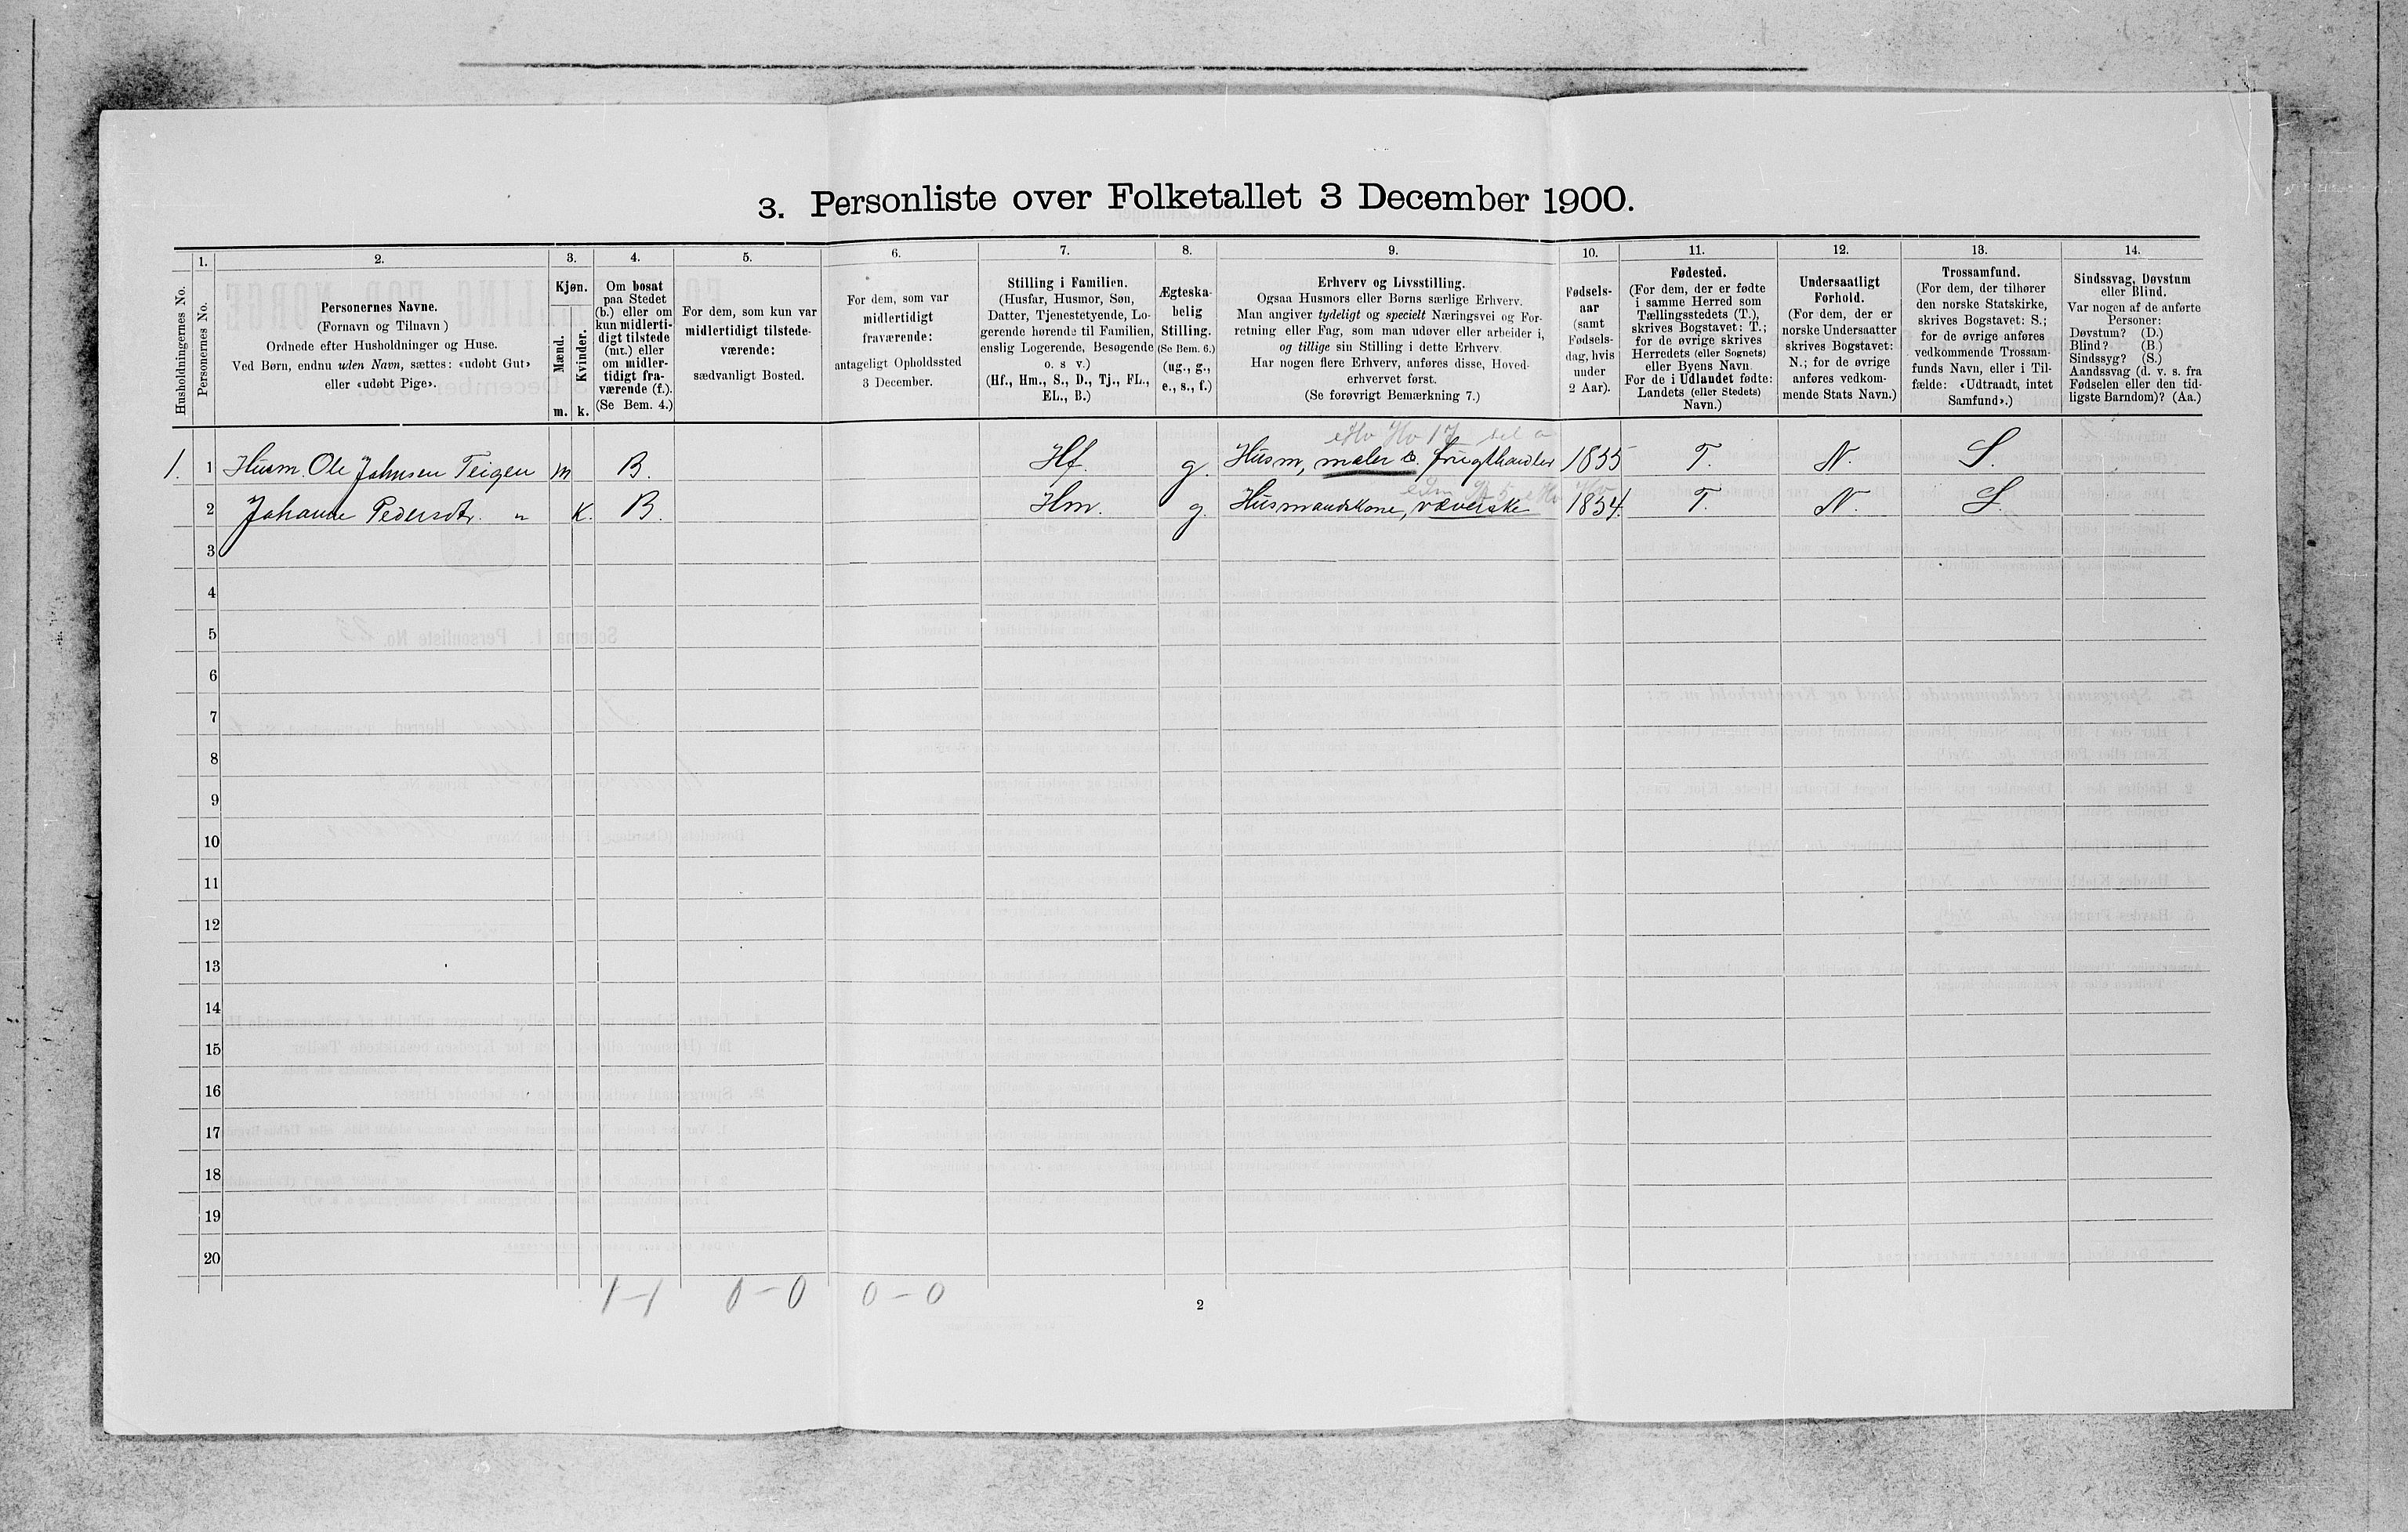 3. Personliste over Folketallet 3 December 1900.
1. 2. 3. 4. 5. 6. 7. 8. 9. 10. 11. 12. 13. 14.
Husholdningernes No.
Personernes No.
Personernes Navne.
(Fornavn og Tilnavn)
Ordnede efter Husholdninger og Huse.
Ved Børn, endnu uden Navn, sættes: «udøbt Gut»
eller «udøbt Pige».
Kjøn.
Mænd.
Kvinder.
m. k.
Om bosat
paa Stedet
(b.) eller om
kun midlerti-
digt tilstede
(mt.) eller
om midler-
tidigt fra-
værende (f.).
(Se Bem. 4.)
For dem, som kun var
midlertidigt tilstede-
værende:
sædvanligt Bosted.
For dem, som var
midlertidigt
fraværende:
antageligt Opholdssted
3 December.
Stilling i Familien.
(Husfar, Husmor, Søn,
Datter, Tjenestetyende, Lo-
gerende hørende til Familien,
enslig Logerende, Besøgende
o. s v.)
(Hf., Hm., S., D., Tj., FL.,
EL., B.)
Ægteska-
belig
Stilling.
(Se Bem. 6.)
(ug., g.,
e., s., f.)
Erhverv og Livsstilling.
Ogsaa Husmors eller Børns særlige Erhverv.
Man angiver tydeligt og specielt Næringsvei og For-
retning eller Fag, som man udøver eller arbeider i,
og tillige sin Stilling i dette Erhverv.
Har nogen flere Erhverv, anføres disse, Hoved-
erhvervet først.
(Se forøvrigt Bemærkning 7.)
Fødsels-
aar
(samt
Fødsels-
dag, hvis
under
2 Aar).
Fødested.
(For dem, der er fødte
i samme Herred som
Tællingsstedets (T.),
skrives Bogstavet: T.;
for de øvrige skrives
Herredets (eller Sognets)
eller Byens Navn.
For de i Udlandet fødte:
Landets (eller Stedets)
Navn.)
Undersaatligt
Forhold.
(For dem, der er
norske Undersaatter
skrives Bogstavet:
N.; for de øvrige
anføres vedkom-
mende Stats Navn.)
Trossamfund.
(For dem, der tilhører
den norske Statskirke,
skrives Bogstavet: S.;
for de øvrige anføres
vedkommende Trossam-
funds Navn, eller i Til-
fælde: «Udtraadt, intet
Samfund».)
Sindssvag, Døvstum
eller Blind.
Var nogen af de anførte
Personer:
Døvstum? (D.)
Blind? (B.)
Sindssyg? (S.)
Aandssvag (d. v. s. fra
Fødselen eller den tid-
ligste Barndom)? (Aa.)
1. 1 Husm. Ole Johnsen Teigen m B. Hf. g. Husm, maler &. frugthandler 1835 T. N. S.
2 Johanne Pedersdtr. " K. B. Hm. g. Husmandskone, væverske 1834. T. N. S.
3
4
5
6
7
8
9
10
11
12
13
14
15
16
17
18
19
20
1-1 0-0 0-0
2